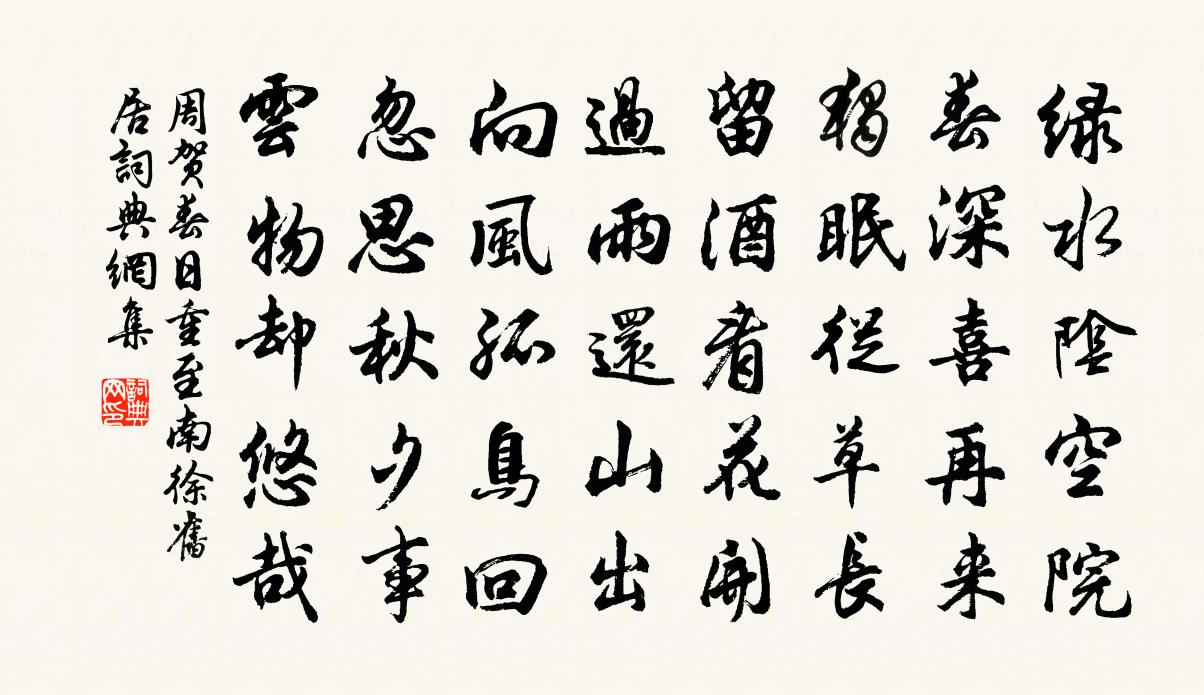 緑水陰空院
春深喜再来
獨眠從草長
留酒看花開
過雨還山出
向風孤鳥回
忽思秋夕事
雲物却悠哉
周賀春日重至南徐舊
居詞典網集
詞典网印